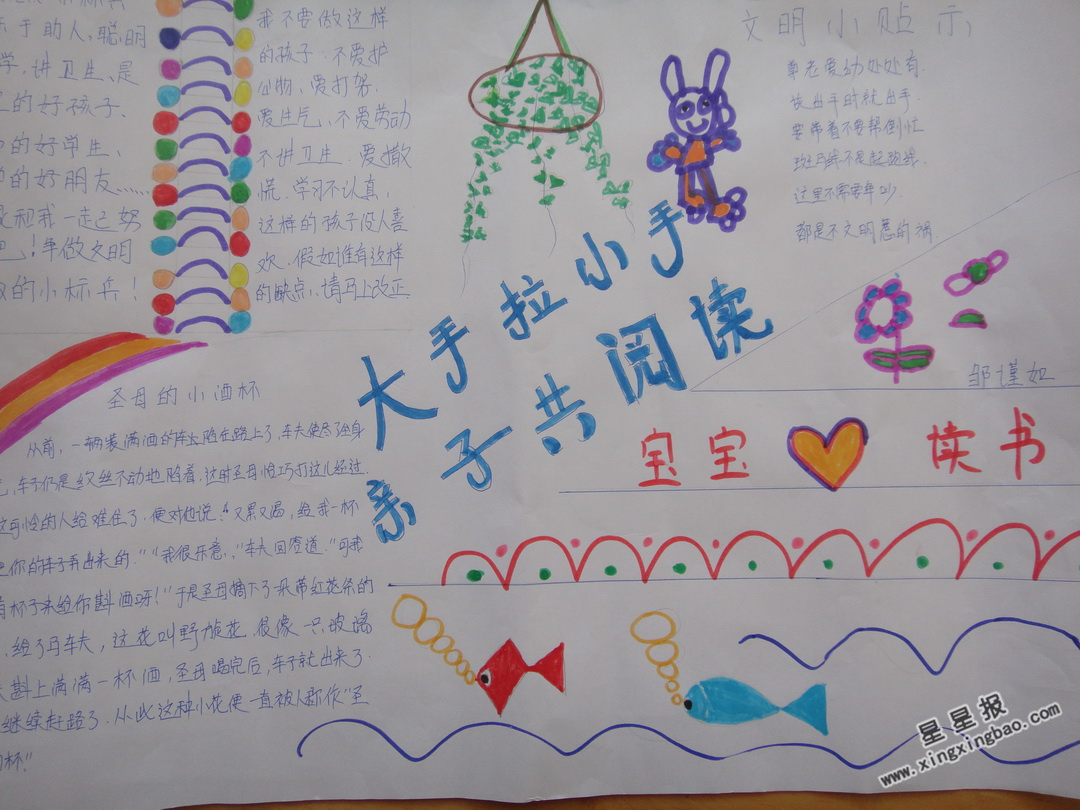 乐于助人、聪明
学,讲卫生、是
的好孩子、
的好学生、
的好朋友……
和我一起努
吧!争做文明
的小标兵!
我不要做这样
的孩子:不爱护
公物、爱打架.
爱生气、不爱劳动
不讲卫生.爱撒
慌.学习不认真,
这样的孩子没人喜
欢.假如谁有这样
的缺点、请马上改正
文明小贴示
尊老爱幼处处有.
该出手时就出手.
斑马线不是起跑线.
都是不文明惹的祸.
大手拉小手
亲子共阅读
邹瑾如
宝宝 读书
圣母的小酒杯
从前,一辆装满酒的车陷在路上了,车夫使尽了全身
车子仍是纹丝不动地陷着.这时圣母恰巧打这儿经过.
可怜的人给难住了.便对他说:“又累又渴,给我一杯
你的车子弄出来的.”“我很乐意,”车夫回答道.“可我
杯子来给你斟酒呀!”于是圣母摘下了朵带红花条的
给了马车夫,这花叫野旋花.很像一只玻璃
斟上满满一杯酒,圣母喝完后,车子就出来了.
继续赶路了.从此这种小花便一直被人称作“圣
杯”
星星报
www.xingxingbao.com